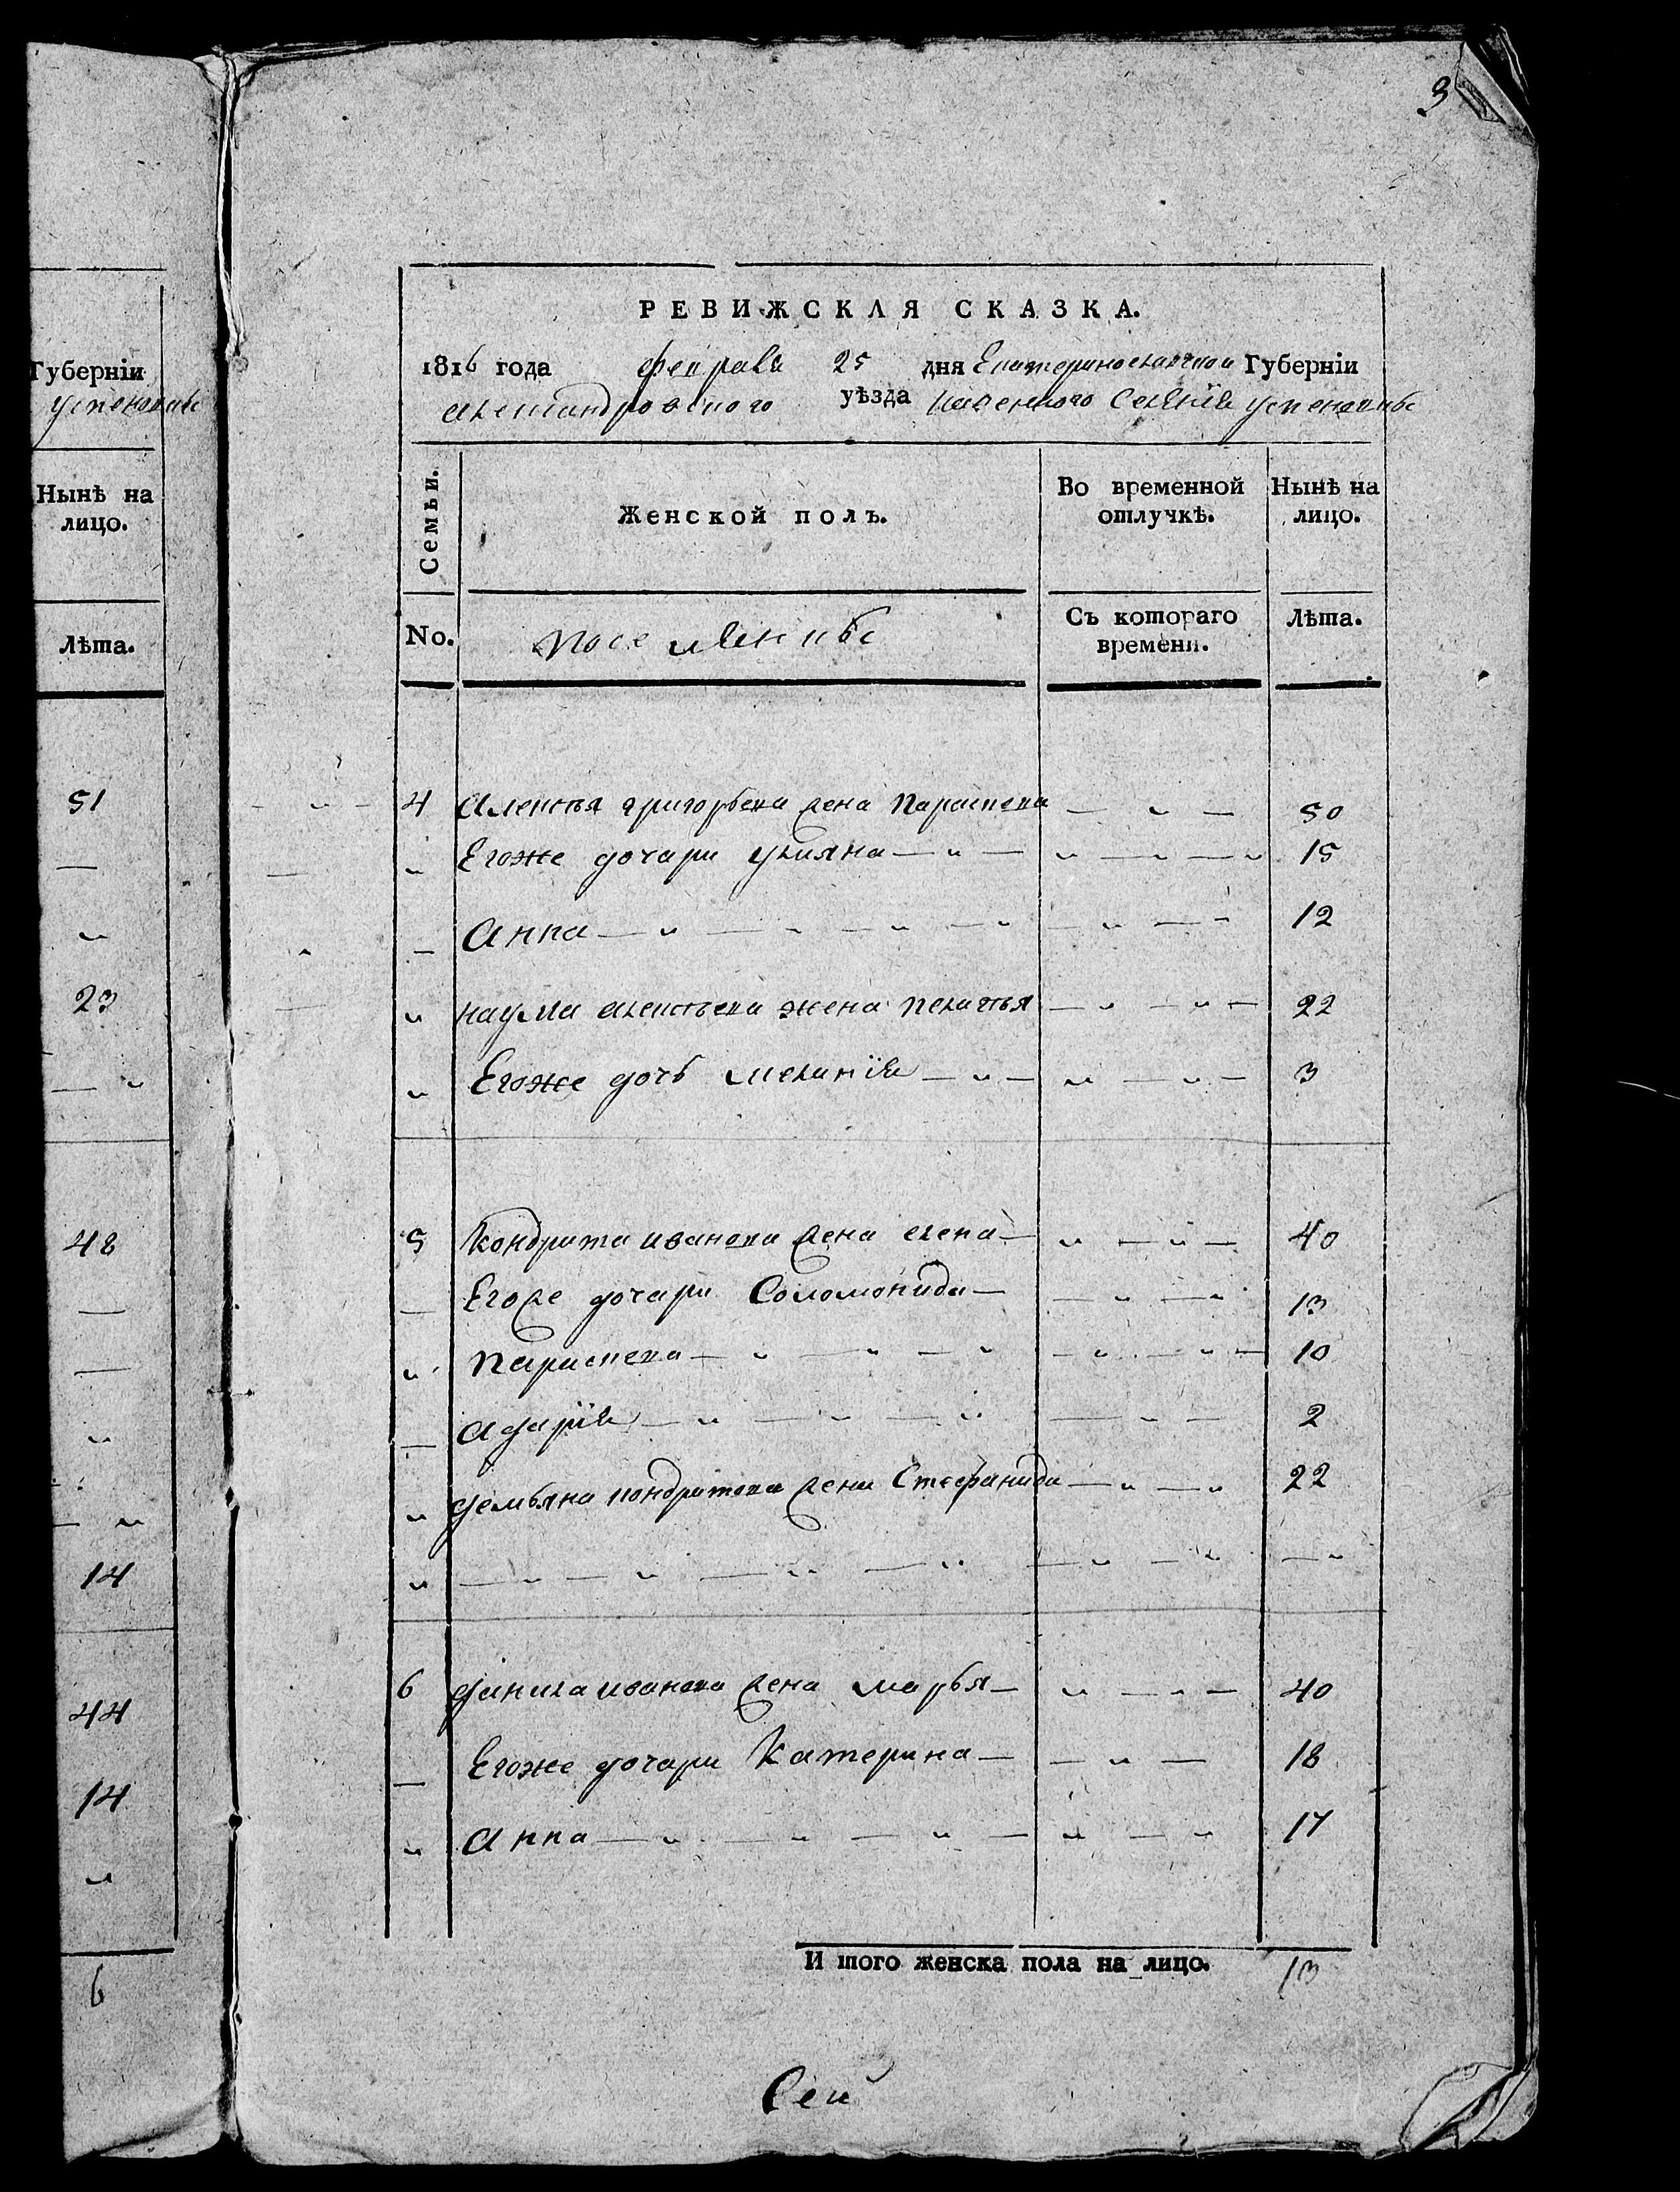 Губерніи
Успеновкѣ
Нынѣ на
лицо.
Лѣта.
51
—
23
48
14
44
14
6
3
РЕВИЖСКАЯ СКАЗКА.
1816 года февраля 25 дня Екатеринославской Губерніи
александровского уѣзда казенного Селенія успеновкѣ
Семьи.
Женской полъ.
Во временной
отлучкѣ.
Нынѣ на
лицо.
No.
поселянкѣ
Съ котораго
времени.
Лѣта.
4 алексѣя григорьева жена параскева — 50
Егоже дочари ульяна — 15
анна — 12
наума алексѣева жена пелагѣя — 22
Егоже дочь меланія — 3
5 Кондрата иванова жена елена — 40
Егоже дочари Соломонида — 13
параскева — 10
адарія — 2
демьяна кондратова жена Стефанида — 22
6 данила иванова жена марья — 40
Егоже дочари Катерина — 18
анна — 17
И того женска пола на лицо. 13
Сей